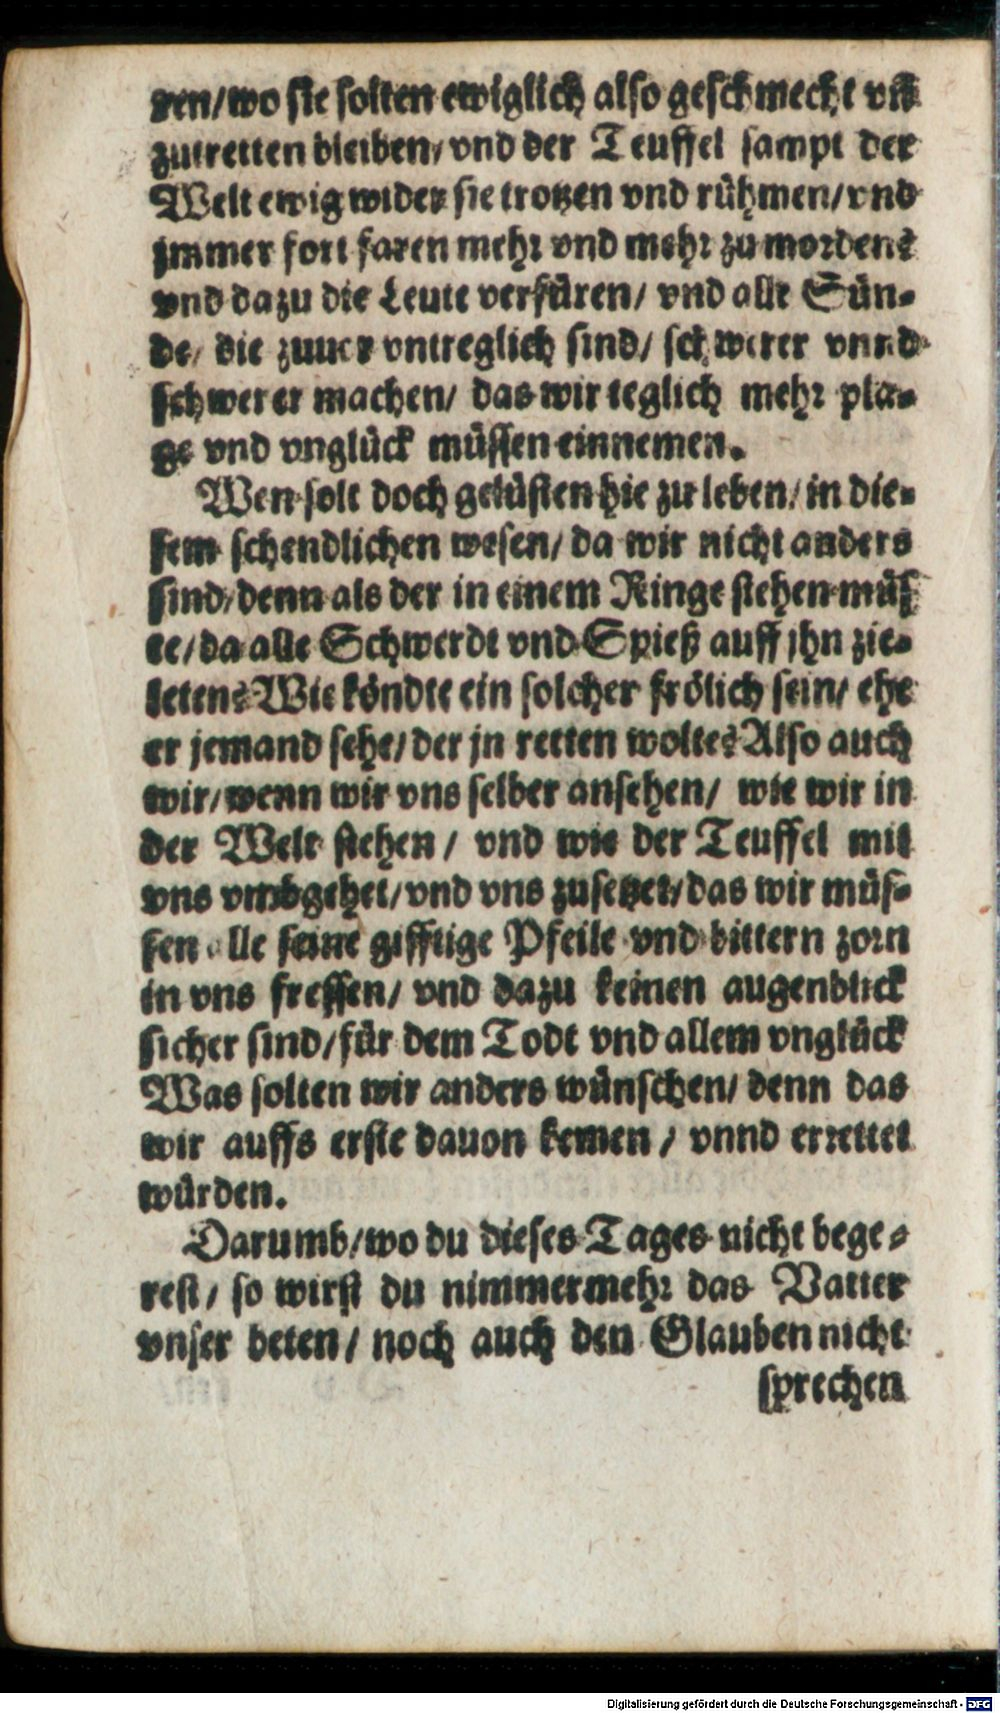 ren/wo sie solten ewiglich also geschmecht vñ
zutretten bleiben/vnd der Teuffel sampt der
Welt ewig wider sie trotzen vnd rühmen/vnd
jmmer fort faren mehr vnd mehr zu morden?
vnd dazu die Leute verfüren/ vnd alle Sün-
de/ die zuuor vntreglich sind/ schwerer vnnd
schwerer machen/ das wir teglich mehr pla-
ge vnd vnglück müssen einnemen.
Wen solt doch gelüsten hie zu leben/in die-
sem schendlichen wesen/ da wir nicht anders
sind/denn als der in einem Ringe stehen müs
te/da alle Schwerdt vnd Spieß auff jhn zie-
leten? Wie köndte ein solcher frölich sein/ ehe
er jemand sehe/der jn retten wolte? Also auch
wir/wenn wir vns selber ansehen/ wie wir in
der Welt stehen/ vnd wie der Teuffel mit
vns vmbgehet/vnd vns zusetzet/das wir müs-
sen alle seine gifftige Pfeile vnd bittern zorn
in vns fressen/ vnd dazu keinen augenblick
sicher sind/für dem Todt vnd allem vnglück
Was solten wir anders wünschen/ denn das
wir auffs erste dauon kemen/ vnnd errettet
würden.
Darumb/wo du dieses Tages nicht bege-
rest/ so wirst du nimmermehr das Vatter
vnser beten/ noch auch den Glauben nicht
sprechen
Digitalisierung gefördert durch die Deutsche Forschungsgemeinschaft - DFG